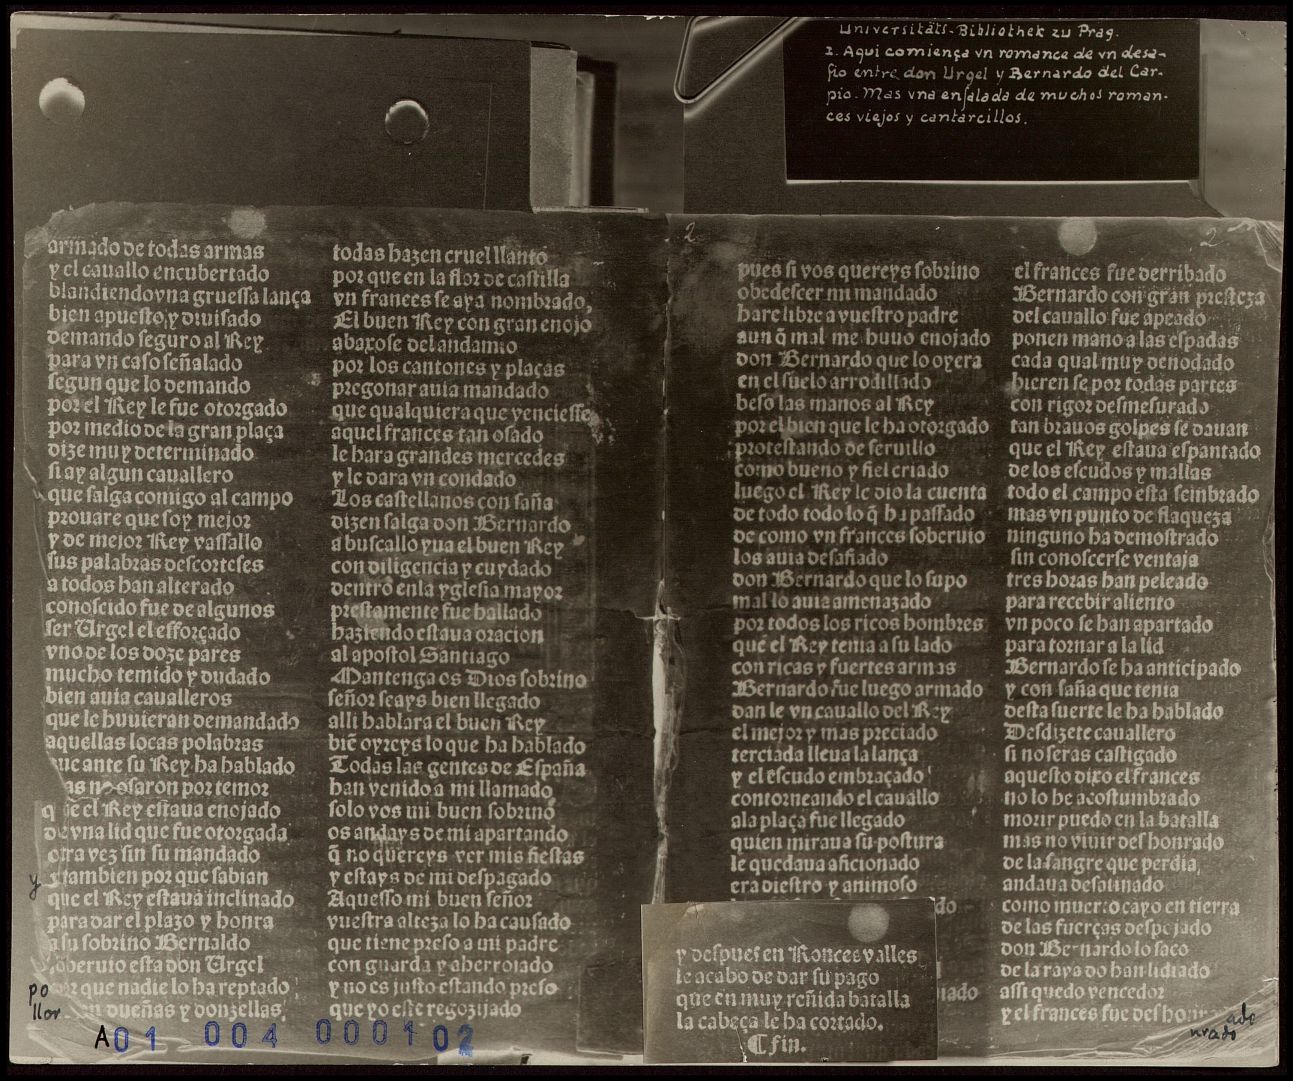 Universitäts-Bibliothek zu Prag.
2. Aqui comiença vn romance de vn desa-
fio entre don Urgel y Bernardo del Car-
pio. Mas vna ensalada de muchos roman-
ces viejos y cantarcillos.
armado de todas armas
y el cauallo encubertado
blandiendo vna gruessa lança
bien apuesto, y diuisado
demando seguro al Rey
para vn caso señalado
segun que lo demando
por el Rey le fue otorgado
por medio de la gran plaça
dize muy determinado
si ay algun cauallero
que salga comigo al campo
prouare que soy mejor
y de mejor Rey vassallo
sus palabras descorteses
a todos han alterado
conoscido fue de algunos
ser Urgel el efforçado
vno de los doze pares
mucho temido y dudado
bien auia caualleros
que le huuieran demandado
aquellas locas polabras
que ante su Rey ha hablado
as no osaron por temor
q̃ el Rey estaua enojado
de vna lid que fue otorgada
otra vez sin su mandado
y tambien por que sabian
que el Rey estaua inclinado
para dar el plazo y honra
a su sobrino Bernaldo
soberuio esta don Urgel
por que nadie lo ha reptado
llor an dueñas y donzellas
todas hazen cruel llanto
por que en la flor de castilla
vn frances se aya nombrado,
El buen Rey con gran enojo
abaxose del andamio
por los cantones y plaças
pregonar auia mandado
que qualquiera que venciesse
aquel frances tan osado
le hara grandes mercedes
y le dara vn condado
Los castellanos con saña
dizen salga don Bernardo
a buscallo yua el buen Rey
con diligencia y cuydado
dentro en la yglesia mayor
prestamente fue hallado
haziendo estaua oracion
al apostol Santiago
Mantenga os Dios sobrino
señor seays bien llegado
alli hablara el buen Rey
biẽ oyreys lo que ha hablado
Todas las gentes de España
han venido a mi llamado
solo vos mi buen sobrino
os andays de mi apartando
q̃ no quereys ver mis fiestas
y estays de mi despagado
Aquesso mi buen señor
vuestra alteza lo ha causado
que tiene preso a mi padre
con guarda y aherrojado
y no es justo estando preso
que yo este regozijado
A01 004 000102
2
2
pues si vos quereys sobrino
obedescer mi mandado
hare libre a vuestro padre
aun q̃ mal me huuo enojado
don Bernardo que lo oyera
en el suelo arrodillado
beso las manos al Rey
por el bien que le ha otorgado
protestando de seruillo
como bueno y fiel criado
luego el Rey le dio la cuenta
de todo todo lo q̃ ha passado
de como vn frances soberuio
los auia desafiado
don Bernardo que lo supo
mal lo auia amenazado
por todos los ricos hombres
que el Rey tenia a su lado
con ricas y fuertes armas
Bernardo fue luego armado
dan le vn cauallo del Rey
el mejor y mas preciado
terciada lleua la lança
y el escudo embraçado
contorneando el cauallo
ala plaça fue llegado
quien miraua su postura
le quedaua aficionado
era diestro y animoso
el frances fue derribado
Bernardo con gran presteza
del cauallo fue apeado
ponen mano a las espadas
cada qual muy denodado
hieren se por todas partes
con rigor desmesurado
tan brauos golpes se dauan
que el Rey estaua espantado
de los escudos y mallas
todo el campo esta sembrado
mas vn punto de flaqueza
ninguno ha demostrado
sin conoscerse ventaja
tres horas han peleado
para recebir aliento
vn poco se han apartado
para tornar a la lid
Bernardo se ha anticipado
y con saña que tenia
desta suerte le ha hablado
Desdizete cauallero
si no seras castigado
aquesto dixo el frances
no lo he acostumbrado
morir puedo en la batalla
mas no viuir deshonrado
de la sangre que perdia,
andaua desatinado
como muerto cayo en tierra
de las fuerças despojado
don Bernardo lo saco
de la raya do han lidiado
assi quedo vencedor
y el frances fue deshonrado
y despues en Roncesvalles
le acabo de dar su pago
que en muy reñida batalla
la cabeça le ha cortado.
¶ Fin.